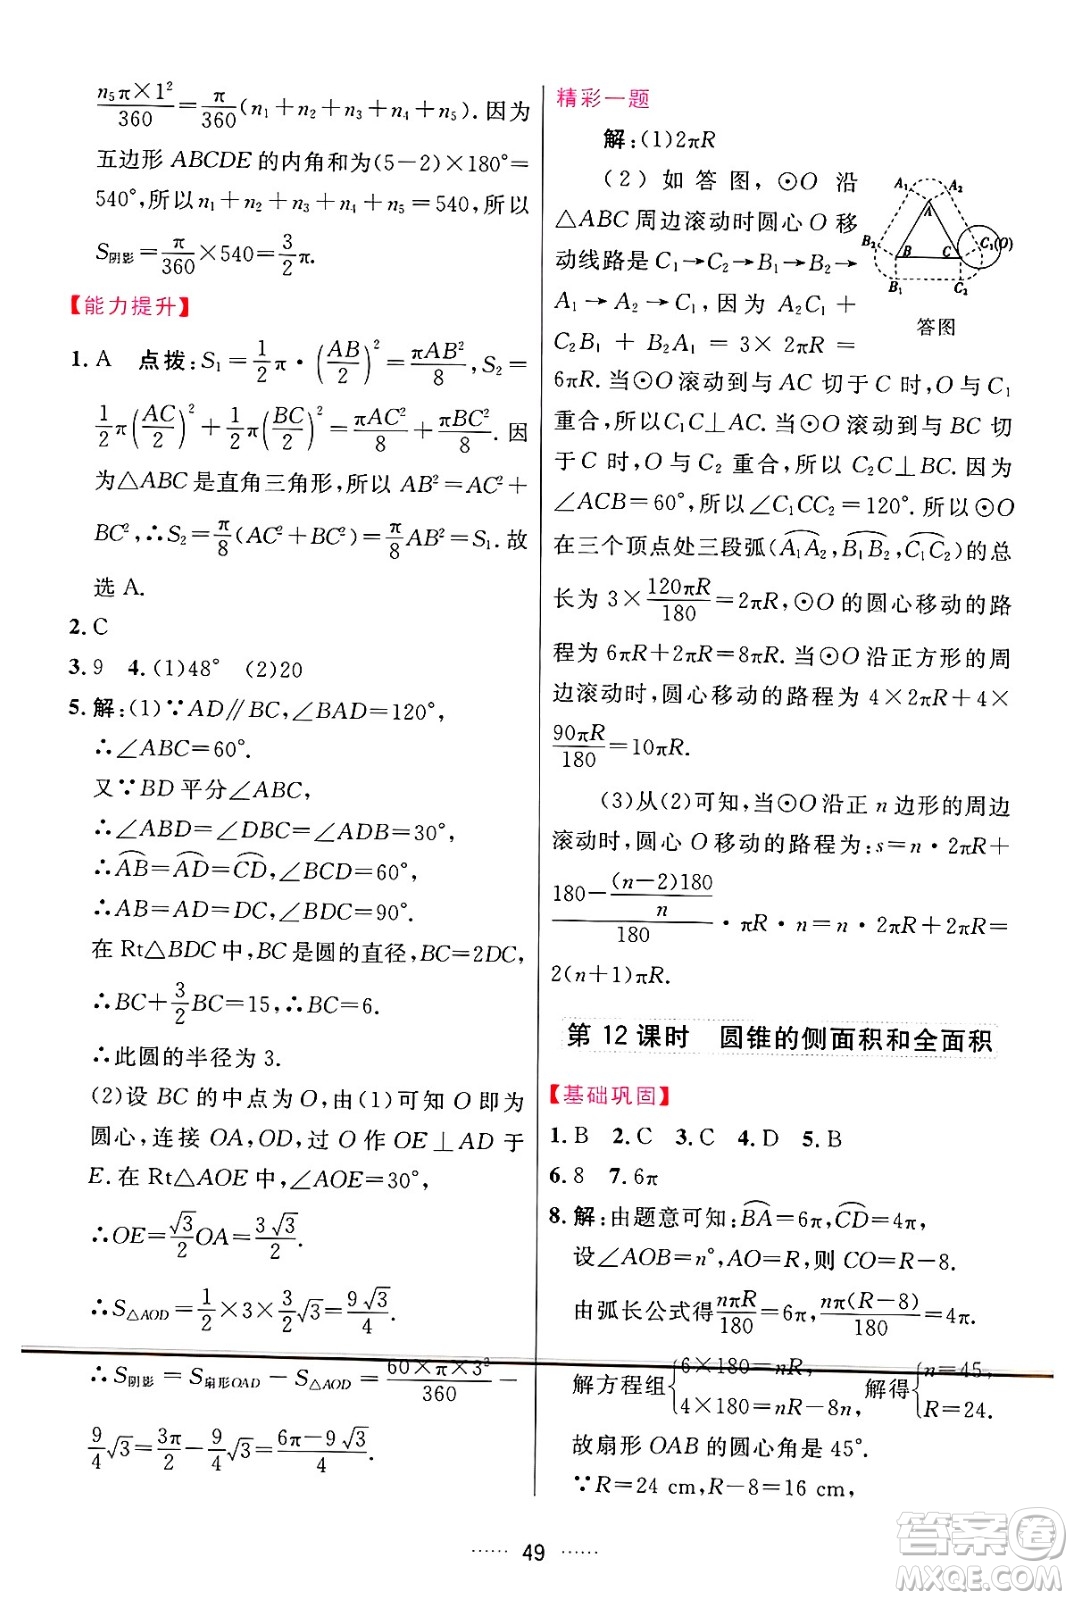 n₅π×1²/360=π/360(n₁+n₂+n₃+n₄+n₅).因为
五边形 ABCDE 的内角和为(5－2)×180°=
540°,所以 n₁+n₂+n₃+n₄+n₅=540,所以
S阴影=π/360×540=3/2π.
【能力提升】
1. A 点拨:S₁=1/2π·(AB/2)²=πAB²/8,S₂=
1/2π(AC/2)²+1/2π(BC/2)²=πAC²/8+πBC²/8.因
为△ABC 是直角三角形,所以 AB²=AC²+
BC²,∴S₂=π/8(AC²+BC²)=π/8AB²=S₁.故
选 A.
2. C
3. 9 4. (1)48° (2)20
5. 解:(1)∵AD∥BC,∠BAD=120°,
∴∠ABC=60°.
又∵BD 平分∠ABC,
∴∠ABD=∠DBC=∠ADB=30°,
∴⌒AB=⌒AD=⌒CD,∠BDC=90°,
∴AB=AD=DC,∠BDC=90°.
在 Rt△BDC 中,BC 是圆的直径,BC=2DC,
∴BC+3/2BC=15,∴BC=6.
∴此圆的半径为 3.
(2)设 BC 的中点为 O,由(1)可知 O 即为
圆心,连接 OA,OD,过 O 作 OE⊥AD 于
E.在 Rt△AOE 中,∠AOE=30°,
∴OE=√3/2OA=3√3/2.
∴S△AOD=1/2×3×3/2√3=9√3/4.
∴S阴影=S扇形OAD－S△AOD=60×π×3²/360－
9/4√3=3π/2－9/4√3=6π－9√3/4.
精彩一题
解:(1)2πR
(2)如答图,⊙O 沿
△ABC 周边滚动时圆心 O 移
动线路是 C₁→C₂→B₁→B₂→
A₁→A₂→C₁,因为 A₂C₁+
C₂B₁+B₂A₁=3×2πR=
6πR.当⊙O 滚动到与 AC 切于 C 时,O 与 C₁
重合,所以C₁C⊥AC.当⊙O 滚动到与 BC 切
于 C 时,O 与 C₂ 重合,所以 C₂C⊥BC.因为
∠ACB=60°,所以∠C₁CC₂=120°.所以⊙O
在三个顶点处三段弧(⌒A₁A₂,⌒B₁B₂,⌒C₁C₂)的总
长为 3×120πR/180=2πR,⊙O 的圆心移动的路
程为 6πR+2πR=8πR.当⊙O 沿正方形的周
边滚动时,圆心移动的路程为 4×2πR+4×
90πR/180=10πR.
A₁ A₂
A
B₂ B C C₁(O)
B₁ C₂
答图
(3)从(2)可知,当⊙O 沿正 n 边形的周边
滚动时,圆心 O 移动的路程为:s=n·2πR+
(180－(n－2)180/n)/180·πR·n=n·2πR+2πR=
2(n+1)πR.
第 12 课时 圆锥的侧面积和全面积
【基础巩固】
1. B 2. C 3. C 4. D 5. B
6. 8 7. 6π
8. 解:由题意可知:⌒BA=6π,⌒CD=4π,
设∠AOB=n°,AO=R,则 CO=R－8.
由弧长公式得 nπR/180=6π,nπ(R－8)/180=4π,
解方程组{6×180=nR, 4×180=nR－8n, 解得{n=45, R=24.
故扇形 OAB 的圆心角是 45°.
∵R=24 cm,R－8=16 cm,
······ 49 ······
答案卷
MXQE.COM